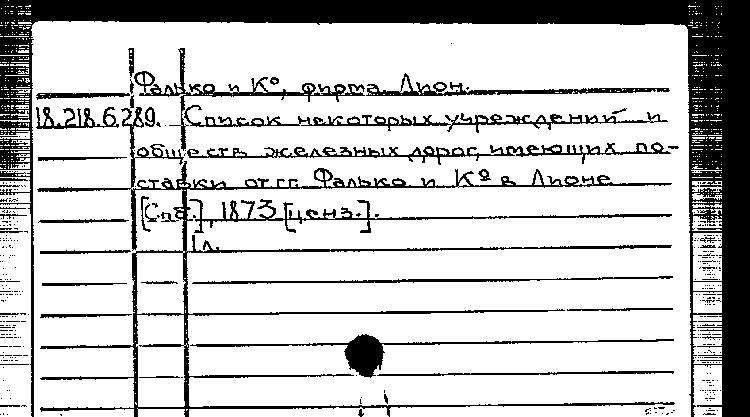 Фалько и К°, фирма. Лион.
18.218.6.289. Список некоторых учреждений и
обществ железных дорог, имеющих по-
ставки от гг. Фалько и К° в Лионе
[Спб.], 1873 [ценз.].
1 л.